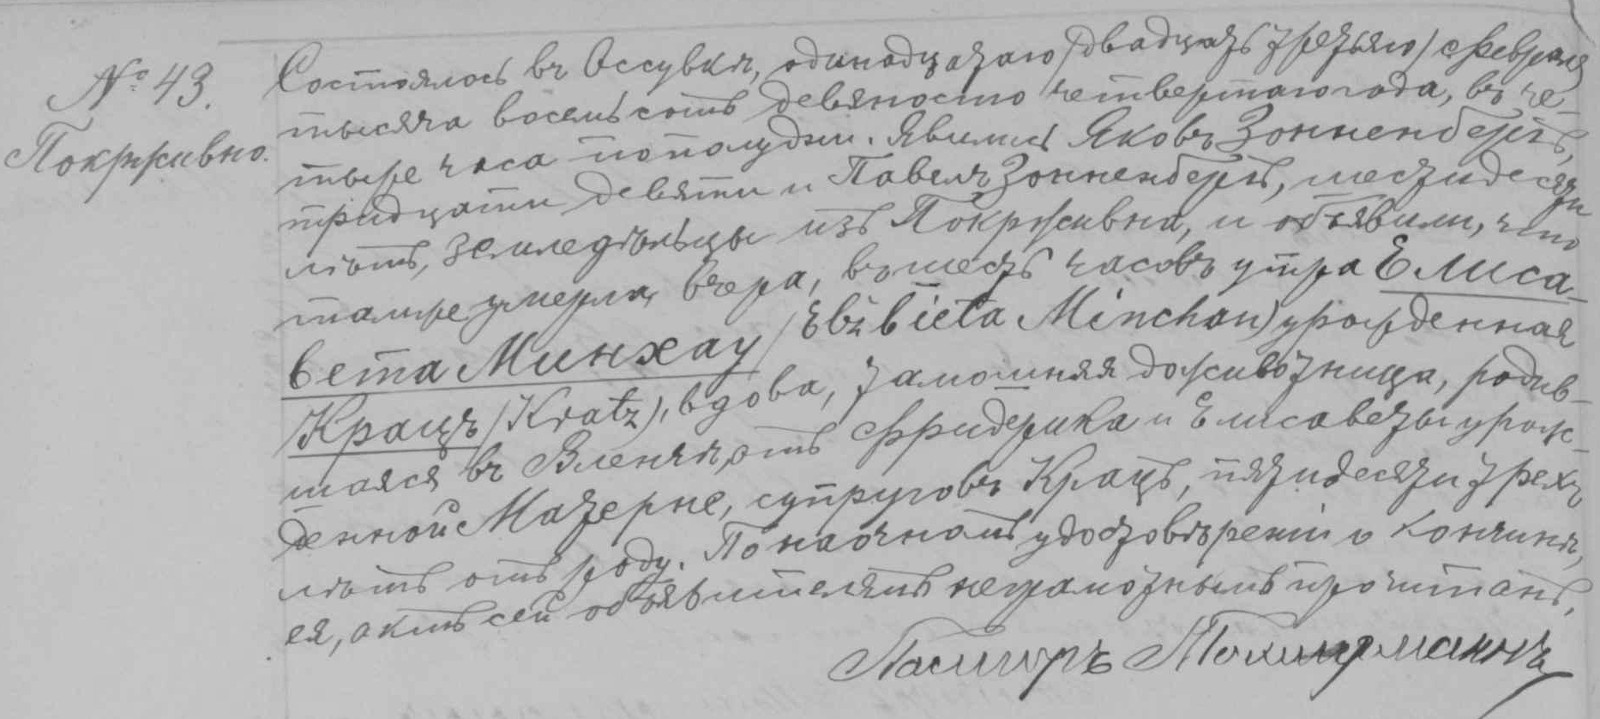 № 43.
Покрживно.
Состоялось въ Оссувкѣ, одинадцатаго (двадцать третьяго) февраля
тысяча восемьсотъ девяносто четвертаго года, въ че-
тыре часа по полудни. Явились Яковъ Зонненбергъ,
тридцати девяти и Павелъ Зонненбергъ, шестидесяти
лѣтъ, земледѣльцы изъ Покрживна, и объявили, что
тамже умерла, вчера, въ шесть часовъ утра Елиса-
вета Минхау (Elżbieta Minchau) урожденная
Крацъ (Kratz), вдова, тамошняя доживотница, родив-
шаяся въ Вленчѣ, отъ Фридерика и Елисаветы урож-
денной Матерне, супруговъ Крацъ, пятидесяти трехъ
лѣтъ отъ роду. По наочномъ удостовѣреніи о кончинѣ
ея, актъ сей объявителямъ неграмотнымъ прочитанъ.
Пасторъ